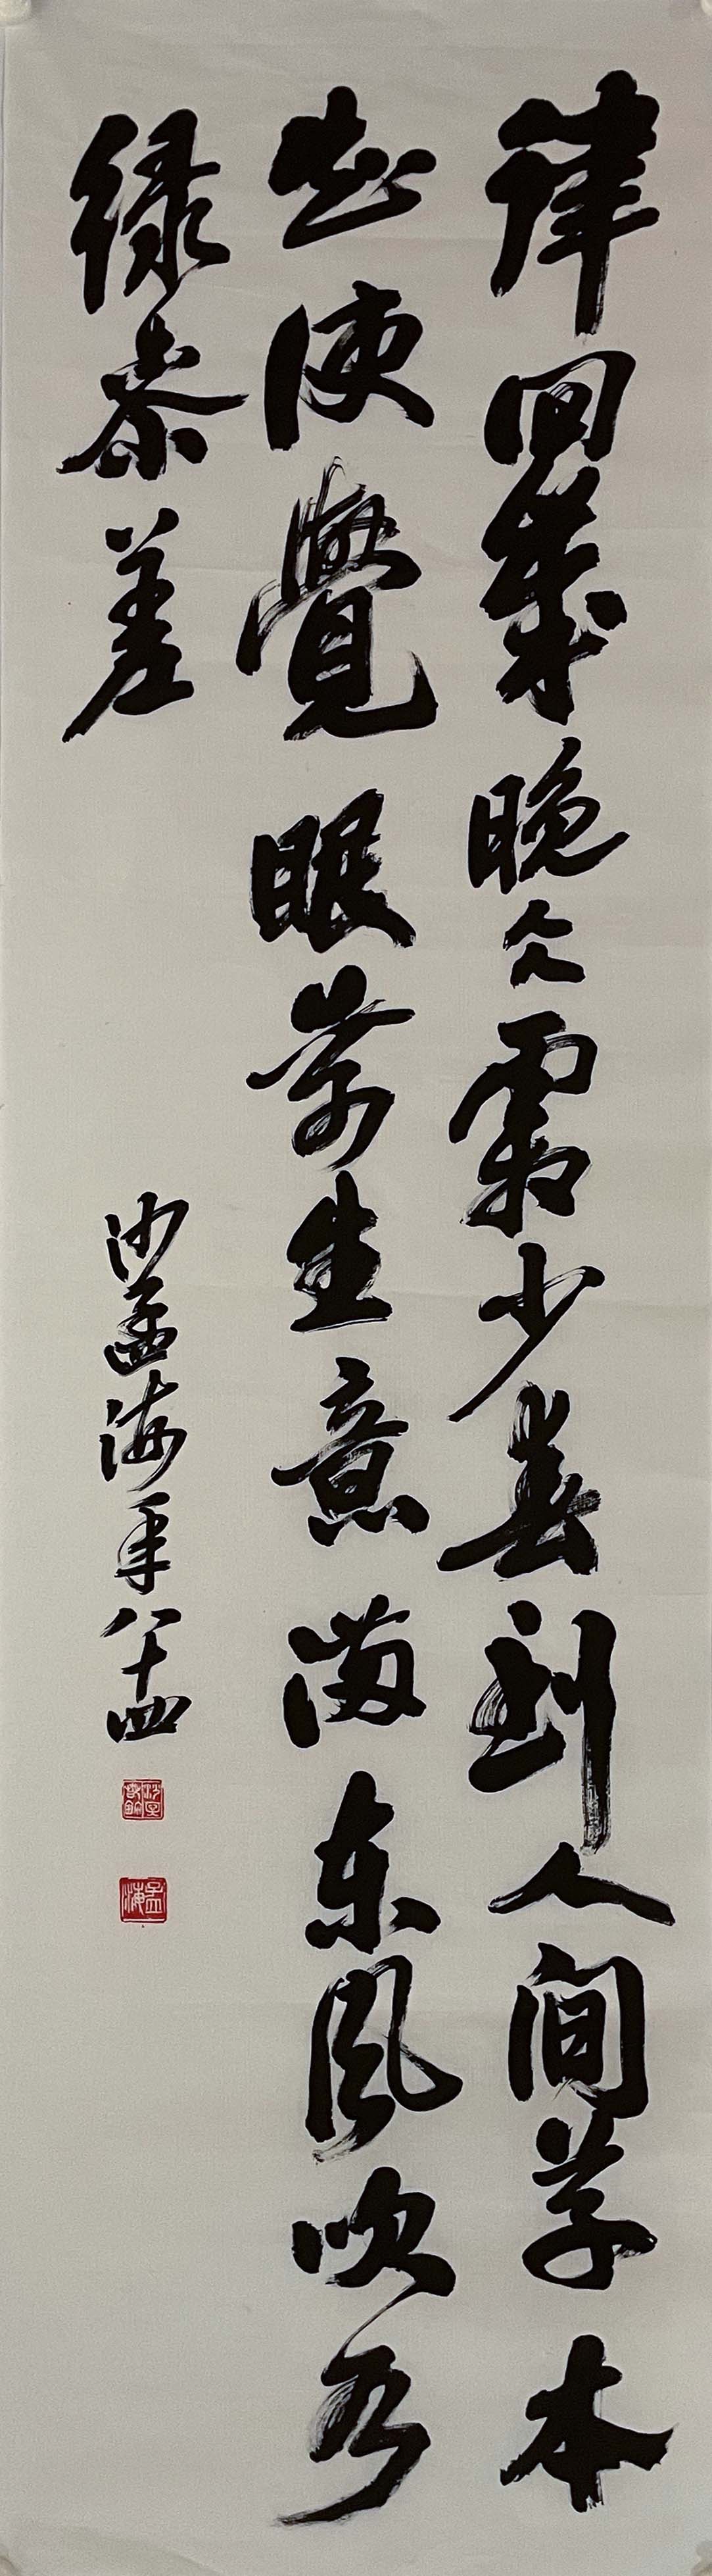 律回歲晚仌霜少春到人间草木
知便覺眼前生意满东风吹水
绿参差
沙孟海年八十四
孟海